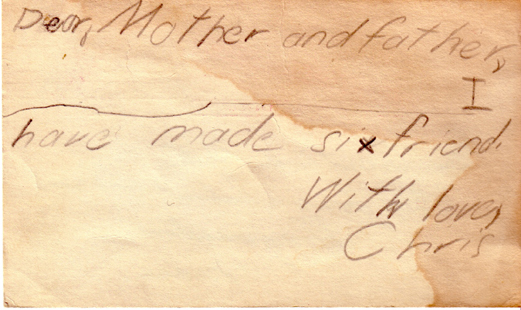 Dear, Mother and father,
I
have made six friend.
With love,
Chris